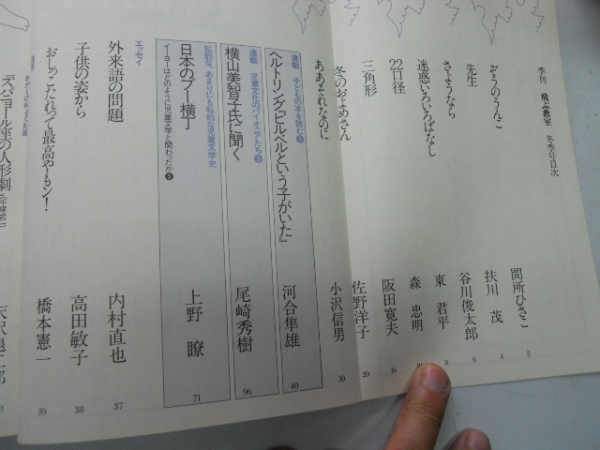 季刊 飛ぶ教室 冬季号目次
ぞうのうんこ 間所ひさこ 2
さようなら 扶川 茂 4
先生 谷川俊太郎 6
迷惑いろいろばなし 東 君平 8
22口径 森 忠明
三角形 阪田寛夫 16
冬のおよめさん 佐野洋子 20
ああそれなのに 小沢信男 30
連載 子どもの本を読む❺
ヘルトリング『ヒルベルという子がいた』 河合隼雄 40
連載 児童文化のパイオニアたち❺
横山美智子氏に聞く 尾崎秀樹 96
私的な、あまりにも私的な児童文学史
日本のプー横丁
イーヨーはどのように児童文学と関わったか❸ 上野 瞭 71
エッセイ
外来語の問題 内村直也 37
子供の姿から 高田敏子 38
おしっこたれっ子最高やもン! 橋本憲一 39
スパニョール座の人形劇